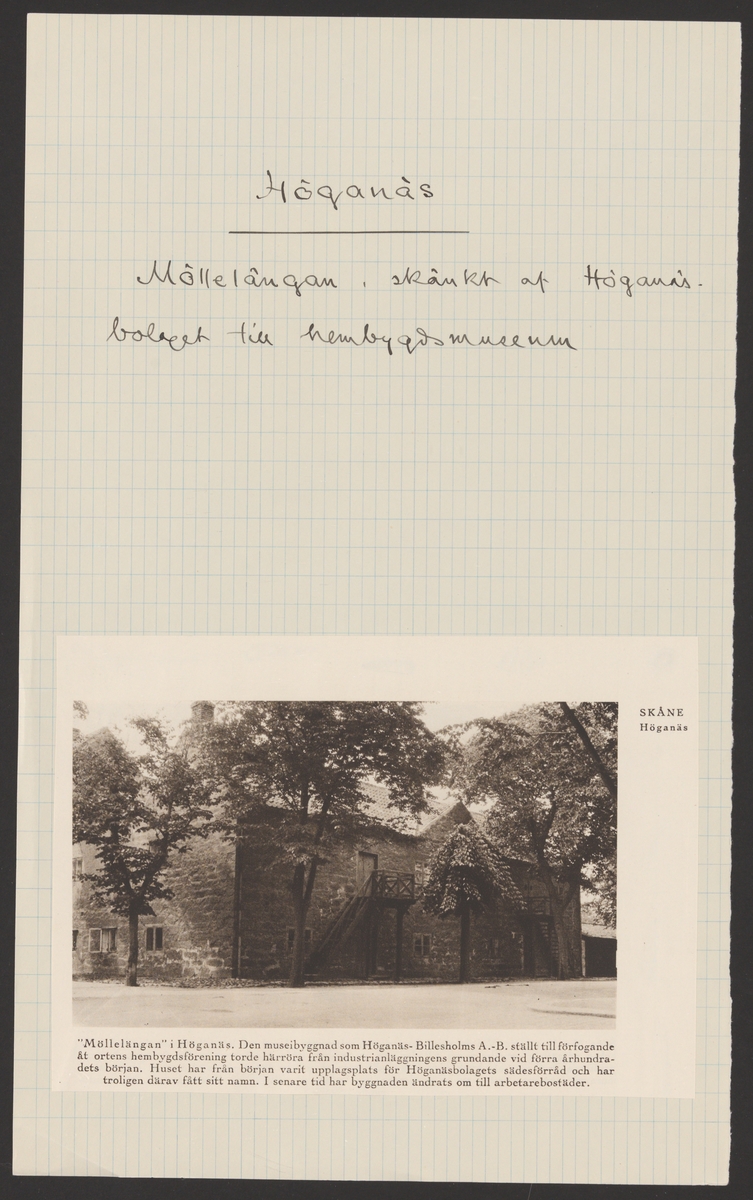 Höganäs
Möllelängan, skänkt af Höganäs-
bolaget till hembygdsmuseum
SKÅNE
Höganäs
"Möllelängan" i Höganäs. Den museibyggnad som Höganäs- Billesholms A.-B. ställt till förfogande
åt ortens hembygdsförening torde härröra från industrianläggningens grundande vid förra århundra-
dets början. Huset har från början varit upplagsplats för Höganäsbolagets sädesförråd och har
troligen därav fått sitt namn. I senare tid har byggnaden ändrats om till arbetarebostäder.